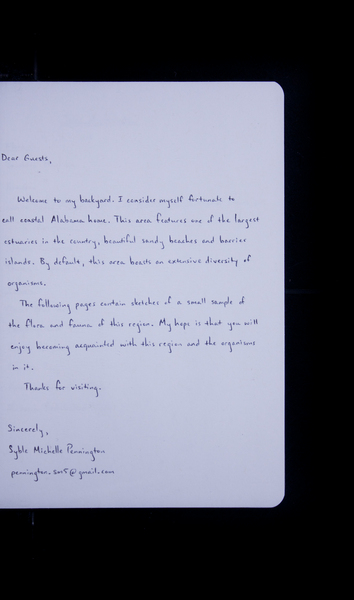 Dear Guests,
Welcome to my backyard. I consider myself fortunate to
call coastal Alabama home. This area features one of the largest
estuaries in the country, beautiful sandy beaches and barrier
islands. By default, this area boasts an extensive diversity of
organisms.
The following pages contain sketches of a small sample of
the flora and fauna of this region. My hope is that you will
enjoy becoming acquainted with this region and the organisms
in it.
Thanks for visiting.
Sincerely,
Syble Michelle Pennington